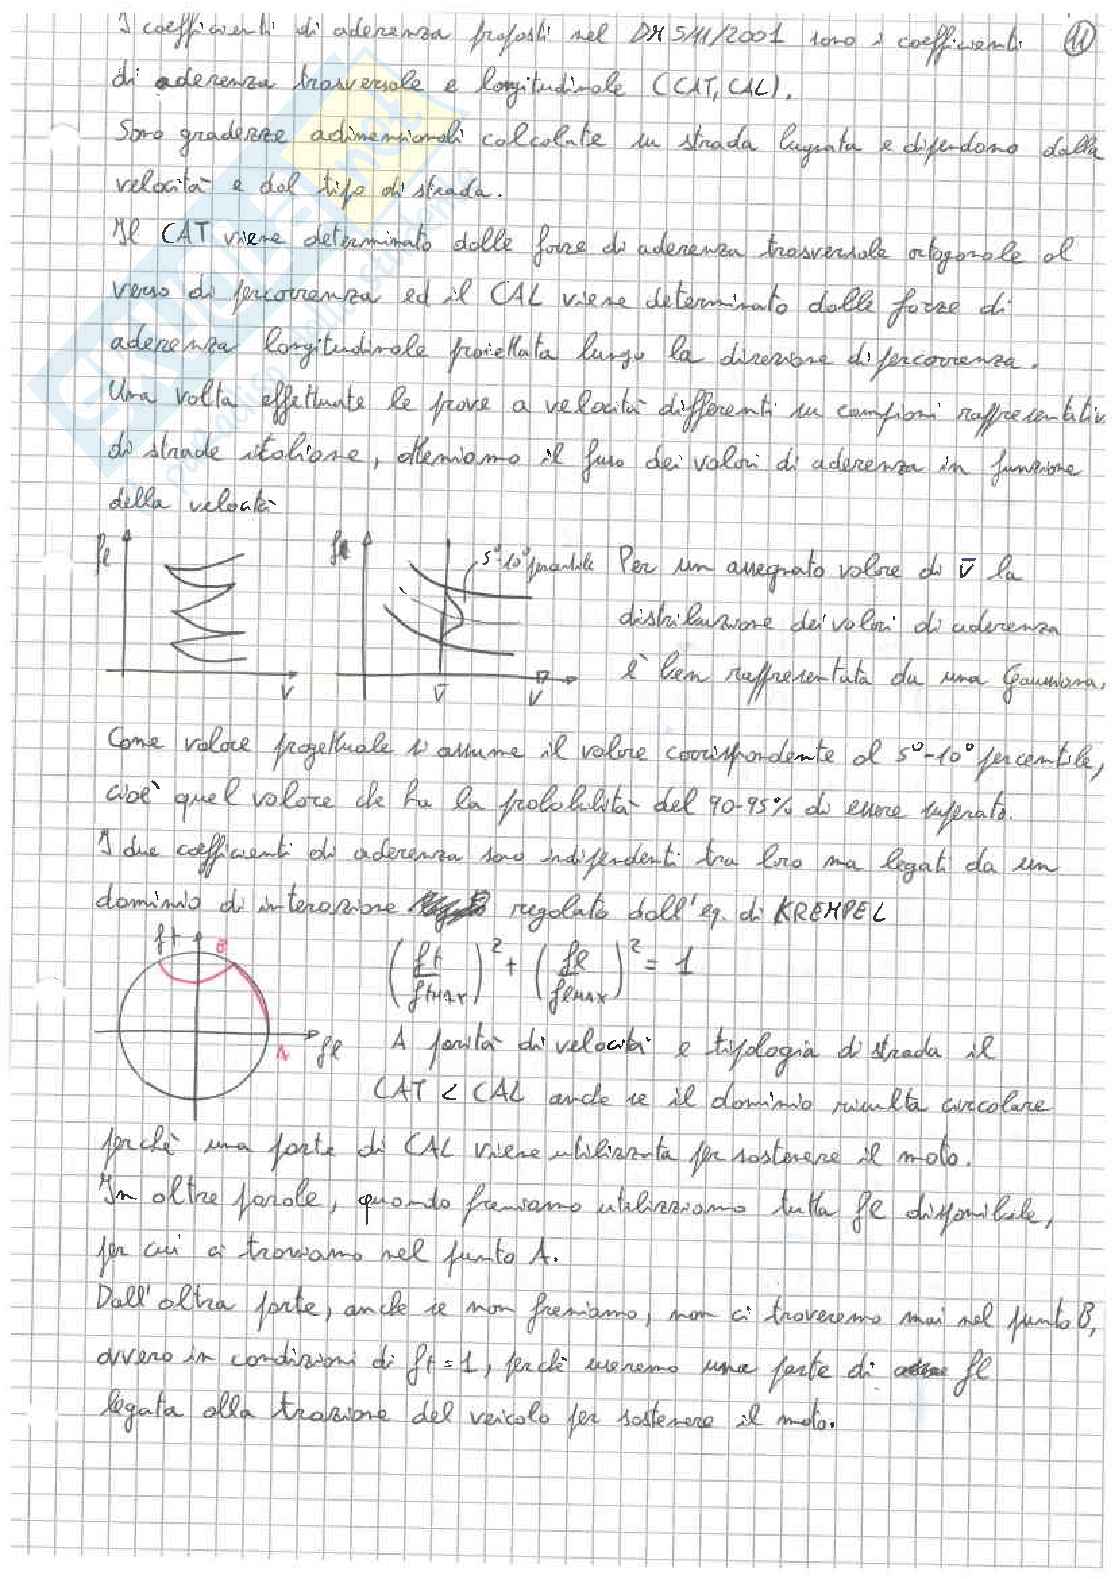 I coefficienti di aderenza proposti nel DM 5/11/2001 sono i coefficienti 11
di aderenza trasversale e longitudinale (CAT, CAL).
Sono grandezze adimensionali calcolate su strada bagnata e dipendono dalla
velocità e dal tipo di strada.
Il CAT viene determinato dalle forze di aderenza trasversale ortogonale al
verso di percorrenza ed il CAL viene determinato dalle forze di
aderenza longitudinale proiettata lungo la direzione di percorrenza.
Una volta effettuate le prove a velocità differenti su campioni rappresentativi
di strade italiane, otteniamo il fuso dei valori di aderenza in funzione
della velocità
fl
V
5°-10° percentile
V̄
V
Per un assegnato valore di V̄ la
distribuzione dei valori di aderenza
è ben rappresentata da una Gaussiana.
Come valore progettuale si assume il valore corrispondente al 5°-10° percentile,
cioè quel valore che ha la probabilità del 90-95% di essere superato.
I due coefficienti di aderenza sono indipendenti tra loro ma legati da un
dominio di interazione regolato dall'eq. di KREMPEL
ft
B
fl
A
(ft/ftMAX)² + (fl/flMAX)² = 1
A parità di velocità e tipologia di strada il
CAT < CAL anche se il dominio risulta circolare
perchè una parte di CAL viene utilizzata per sostenere il moto.
In altre parole, quando freniamo utilizziamo tutta fl disponibile,
per cui ci troviamo nel punto A.
Dall'altra parte, anche se non freniamo, non ci troveremo mai nel punto B,
ovvero in condizioni di ft=1, perchè useremo una parte di fl
legata alla trazione del veicolo per sostenere il moto.